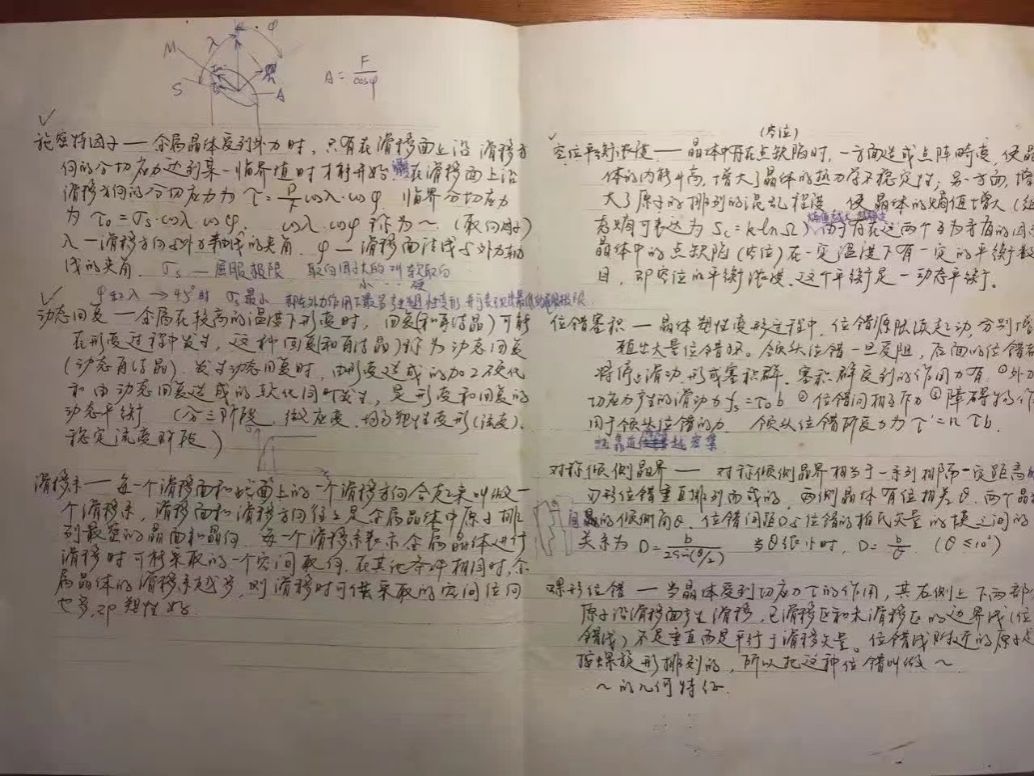 λ φ
M
S A
A = F/cosφ
施密特因子 — 金属晶体受到外力时，只有在滑移面上沿滑移方
向的分切应力达到某一临界值时才能开始 在滑移面上沿
滑移方向的分切应力为 τ = P/F cosλ·cosφ 临界分切应力
为 τ₀ = σs·cosλ cosφ, cosλ cosφ 称为～ (取向因子)
λ — 滑移方向与外力轴线的夹角 φ — 滑移面法线与外力轴
线的夹角. σs — 屈服极限 取向因子大的叫软取向
小 … 硬
φ和λ → 45°时 σs最小
动态回复 — 金属在较高的温度下形变时，回复(和再结晶)可能
在形变过程中发生，这种回复(和再结晶)称为动态回复
(动态再结晶). 发生动态回复时，由形变造成的加工硬化
和由动态回复造成的软化同时发生，是形变和回复的
动态平衡 (分三阶段 微应变、均匀塑性变形(流变)、
稳定流变阶段)
滑移系 — 每一个滑移面和此面上的一个滑移方向合起来叫做一
个滑移系，滑移面和滑移方向往往是金属晶体中原子排
列最密的晶面和晶向. 每一个滑移系表示金属晶体进行
滑移时可能采取的一个空间取向. 在其他条件相同时, 金
属晶体的滑移系越多, 则滑移时可供采取的空间位向
也多, 即塑性好.
(空位)
空位平衡浓度 — 晶体中存在点缺陷时，一方面造成点阵畸变，使晶
体的内能升高，增大了晶体的热力学不稳定性，另一方面，增
大了原子的排列的混乱程度，使晶体的熵值增大 (组
态熵可表达为 Sc = k·lnΩ) 由于存在这两个互为矛盾的因
晶体中的点缺陷 (空位) 在一定温度下有一定的平衡数
目，即空位的平衡浓度. 这个平衡是一动态平衡.
位错塞积 — 晶体塑性变形过程中，位错源陆续起动，分别增
殖出大量位错环。领头位错一旦受阻，后面的位错
将停止滑动，形成塞积群。塞积群受到的作用力有 ①外加
切应力产生的滑动力 fs = τ₀b ②位错间相互作力 ③障碍物作
用于领头位错的力 领头位错所受力为 τ' = nτb.
越靠近 越密集
对称倾侧晶界 — 对称倾侧晶界相当于一系列相隔一定距离的
刃形位错垂直排列而成的，两侧晶体有位相差θ. 两个晶
间的倾侧角θ、位错间距D与位错的柏氏矢量的模之间的
关系为 D = b/2sin(θ/2) 当θ很小时, D = b/θ (θ≤10°)
螺形位错 — 当晶体受到切应力τ的作用，其右侧上下两部
原子沿滑移面产生滑移，已滑移区和未滑移区的边界线(位
错线) 不是垂直而是平行于滑移矢量。位错线附近的原子是
按螺旋形排列的，所以把这种位错叫做～
～的几何特征.